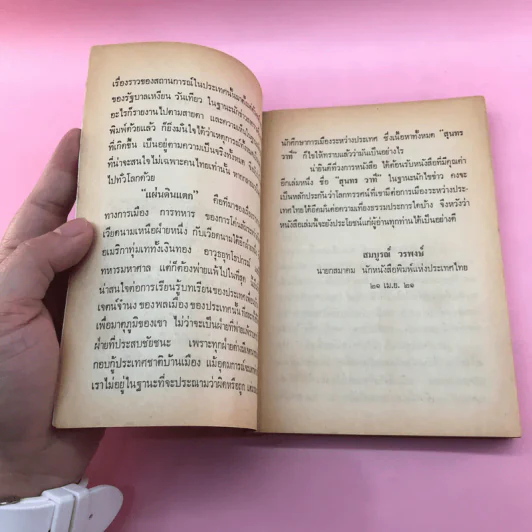 เรื่องราวของสถานการณ์ในประเทศนั้น
ของรัฐบาลเหงียน วันเทียว ในฐานะนักข่าว
อะไรก็รายงานไปตามสายตา และความ
พิมพ์ด้วยแล้ว ก็ยิ่งมั่นใจได้ว่าเหตุการณ์ทั้ง
ที่เกิดขึ้น เป็นอยู่ตามความเป็นจริงทั้งหมด
ที่น่าจะสนใจไม่เฉพาะคนไทยเท่านั้น หาก
ไปทั่วโลกด้วย
"แผ่นดินแตก" คือที่มาของ
ทางการเมือง การทหาร ของการโค่นล้ม
เวียดนามเหนือฝ่ายหนึ่ง กับเวียดนามใต้
อเมริกาทุ่มเททั้งเงินทอง อาวุธยุทโธปกรณ์
ทหารมหาศาล แต่ก็ต้องพ่ายแพ้ไปในที่สุด
น่าสนใจต่อการเรียนรู้บทเรียนของประเทศ
เจตน์จำนงของพลเมืองของประเทศนั้น
เพื่อมาตุภูมิของเขา ไม่ว่าจะเป็นฝ่ายที่พ่ายแพ้
ฝ่ายที่ประสบชัยชนะ เพราะทุกฝ่ายต่าง
กอบกู้ประเทศชาติบ้านเมือง แม้อุดมการณ์
เราไม่อยู่ในฐานะที่จะประณามว่าผิดหรือถูก
นักศึกษาการเมืองระหว่างประเทศ ซึ่งเนื้อหาทั้งหมด "สุนทร
วาที" ก็ใช้ให้ทราบแล้วว่ามันเป็นอย่างไร
น่ายินดีที่วงการหนังสือ ได้ต้อนรับหนังสือที่มีคุณค่า
อีกเล่มหนึ่ง ชื่อ "สุนทร วาที" ในฐานะนักใช้ข่าว คงจะ
เป็นหลักประกันว่าโลกทรรศน์ที่เขามีต่อการเมืองระหว่างประ-
เทศไทยได้ยึดมั่นต่อความเที่ยงธรรมประการใดบ้าง จึงหวังว่า
หนังสือเล่มนี้จะยังประโยชน์แก่ผู้อ่านทุกท่านได้เป็นอย่างดี
สมบูรณ์ วรพงษ์
นายกสมาคม นักหนังสือพิมพ์แห่งประเทศไทย
๒๑ เม.ย. ๒๑